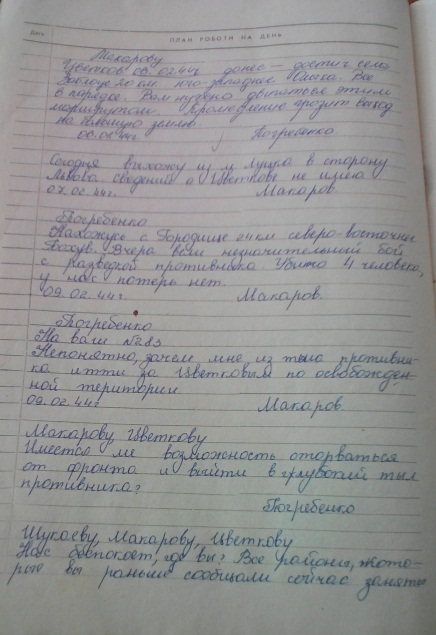 Дата ПЛАН РОБОТИ НА ДЕНЬ
Макарову
Цветков 08.02.44г. донес — достиг села
20 км. юго-западнее Все
в порядке. Вам нужно двигаться этим
маршрутом. Промедление грозит выход
на большую землю.
08.02.44г. Погребенко
Сегодня выхожу из м. Луцка в сторону
Львова. Сведений о Цветкове не имею
07.02.44г. Макаров.
Погребенко
Нахожусь с Городище 24км северо-восточнее
Вчера вели незначительный бой
с разведкой противника. Убито 4 человека,
у нас потерь нет.
09.02.44г. Макаров.
Погребенко
На ваш №283
Непонятно, зачем мне из тыла противни-
ка итти за Цветковым по освобожден-
ной територии
09.02.44г. Макаров.
Макарову, Цветкову
Имеется ли возможность оторваться
от фронта и выйти в глубокий тыл
противника?
Погребенко
Шукаеву, Макарову, Цветкову
Нас беспокоет, где вы? Все районы, кото-
рые вы раньше сообщали сейчас заняты